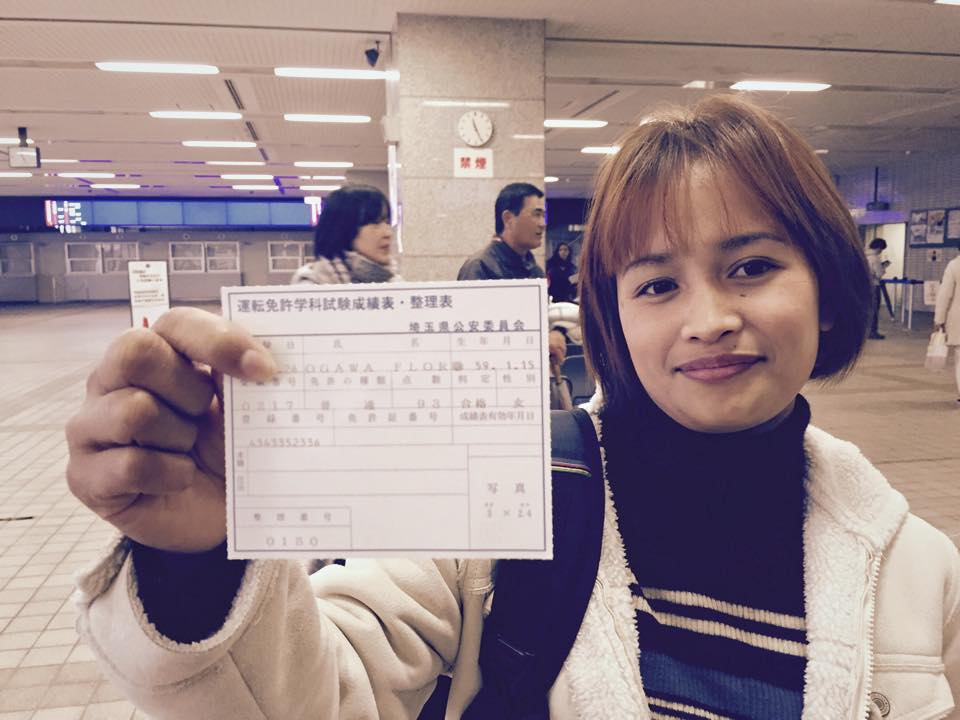 禁煙
運転免許学科試験成績表・整理表
埼玉県公安委員会
験日 氏 名 生年月日
OGAWA FLOR 59.1.15
番号 免許の種類 点数 判定 性別
0217 普通 93 合格 女
登録番号 免許証番号 成績表有効年月日
4343352336
写真
3 × 2.4
整理番号
0150